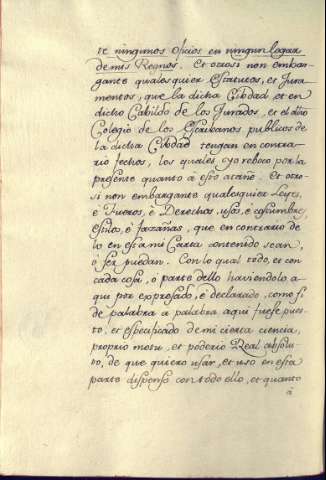 de ningunos oficios en ningun logar
de mis Regnos. Et otrosi non embar-
gante qualesquier Estatutos, et Jura-
mentos, que la dicha Cibdad, et en
dicho Cabildo de los Jurados, et el dho
Colegio de los Escribanos publicos de
la dicha Cibdad tengan en contra-
rio fechos, los quales, yo reboco por la
presente quanto à esto atañe. Et otro-
si non embargante qualesquier Leyes,
è Fueros, è Derechos, usos, è costumbres,
estilos, è fazañas, que en contrario de
lo en esta mi Carta contenido sean,
ò ser puedan. Con lo qual todo, et con
cada cosa, ò parte dello haviendolo a-
qui por expresado, è declarado, como si
de palabra a palabra aqui fuese pues-
to, et especificado de mi cierta ciencia,
proprio motu, et poderio Real absolu-
to, de que quiero usar, et uso en esta
parte dispenso con todo ello, et quanto
à